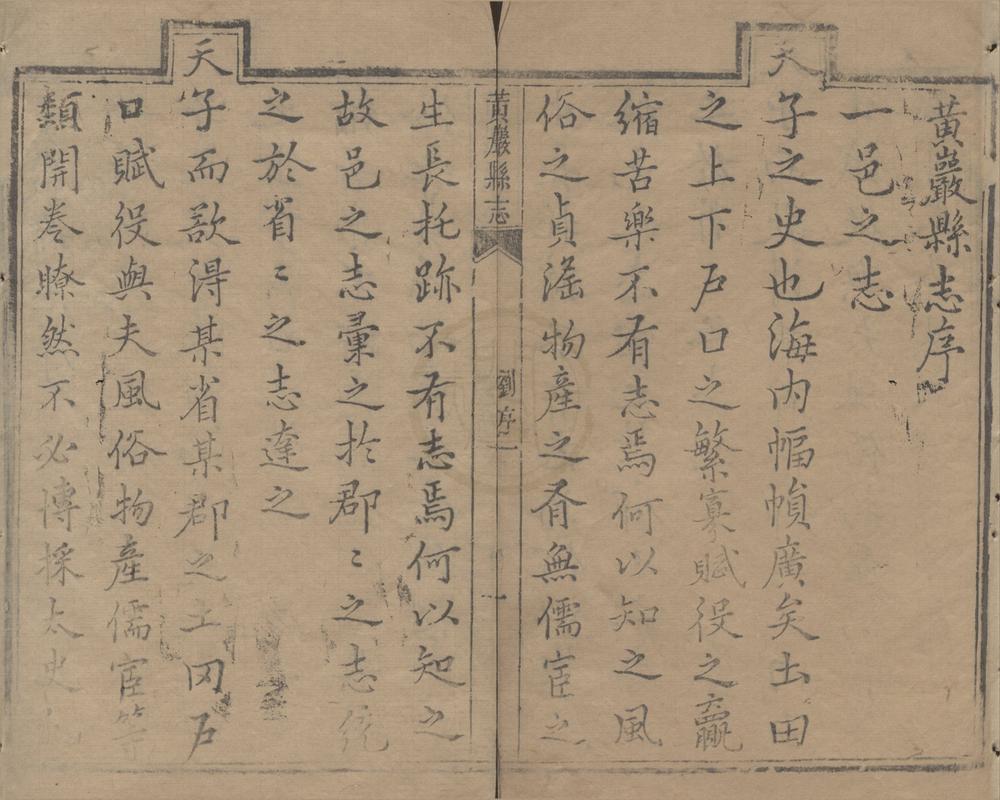 黃巖縣志序
一邑之志
天子之史也海内幅幀廣矣土田
之上下戶口之繁寡賦役之贏
縮苦樂不有志焉何以知之風
俗之貞滛物產之有無儒宦之
黃巖縣志 劉序 一
生長托跡不有志焉何以知之
故邑之志彙之扵郡〻之志統
之於省〻之志達之
天子而欲淂某省某郡之土田戶
口賦役與夫風俗物產儒宦等
類開卷瞭然不必博採太史